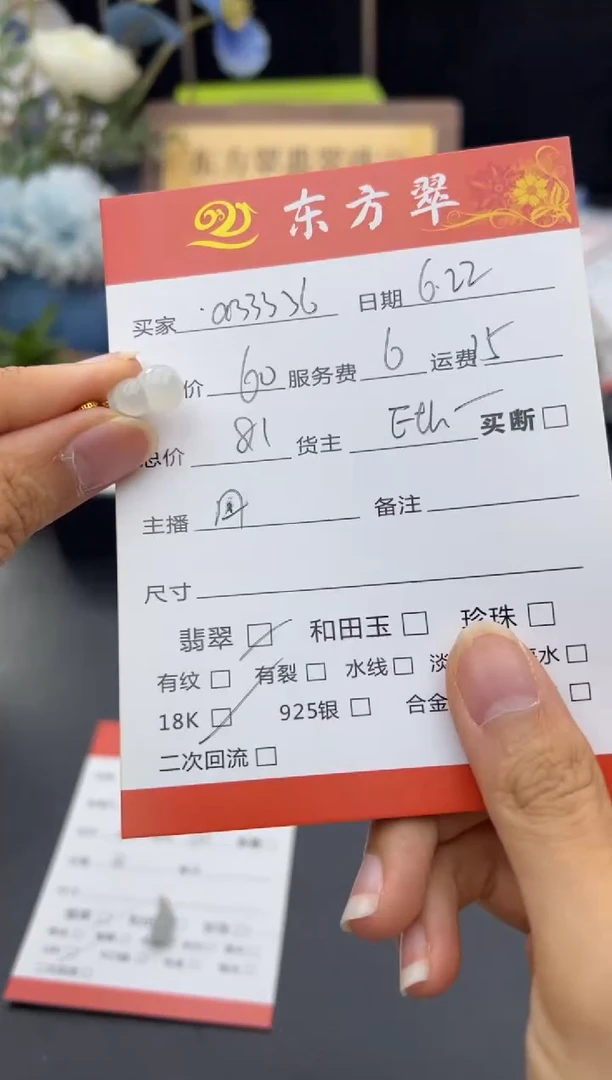 东方翠
买家 003336 日期 6.22
价 60 服务费 6 运费 15
总价 81 货主 Eth
买断
主播 备注
尺寸
翡翠 和田玉 珍珠
有纹 有裂 水线 淡 水
18K 925银 合金
二次回流